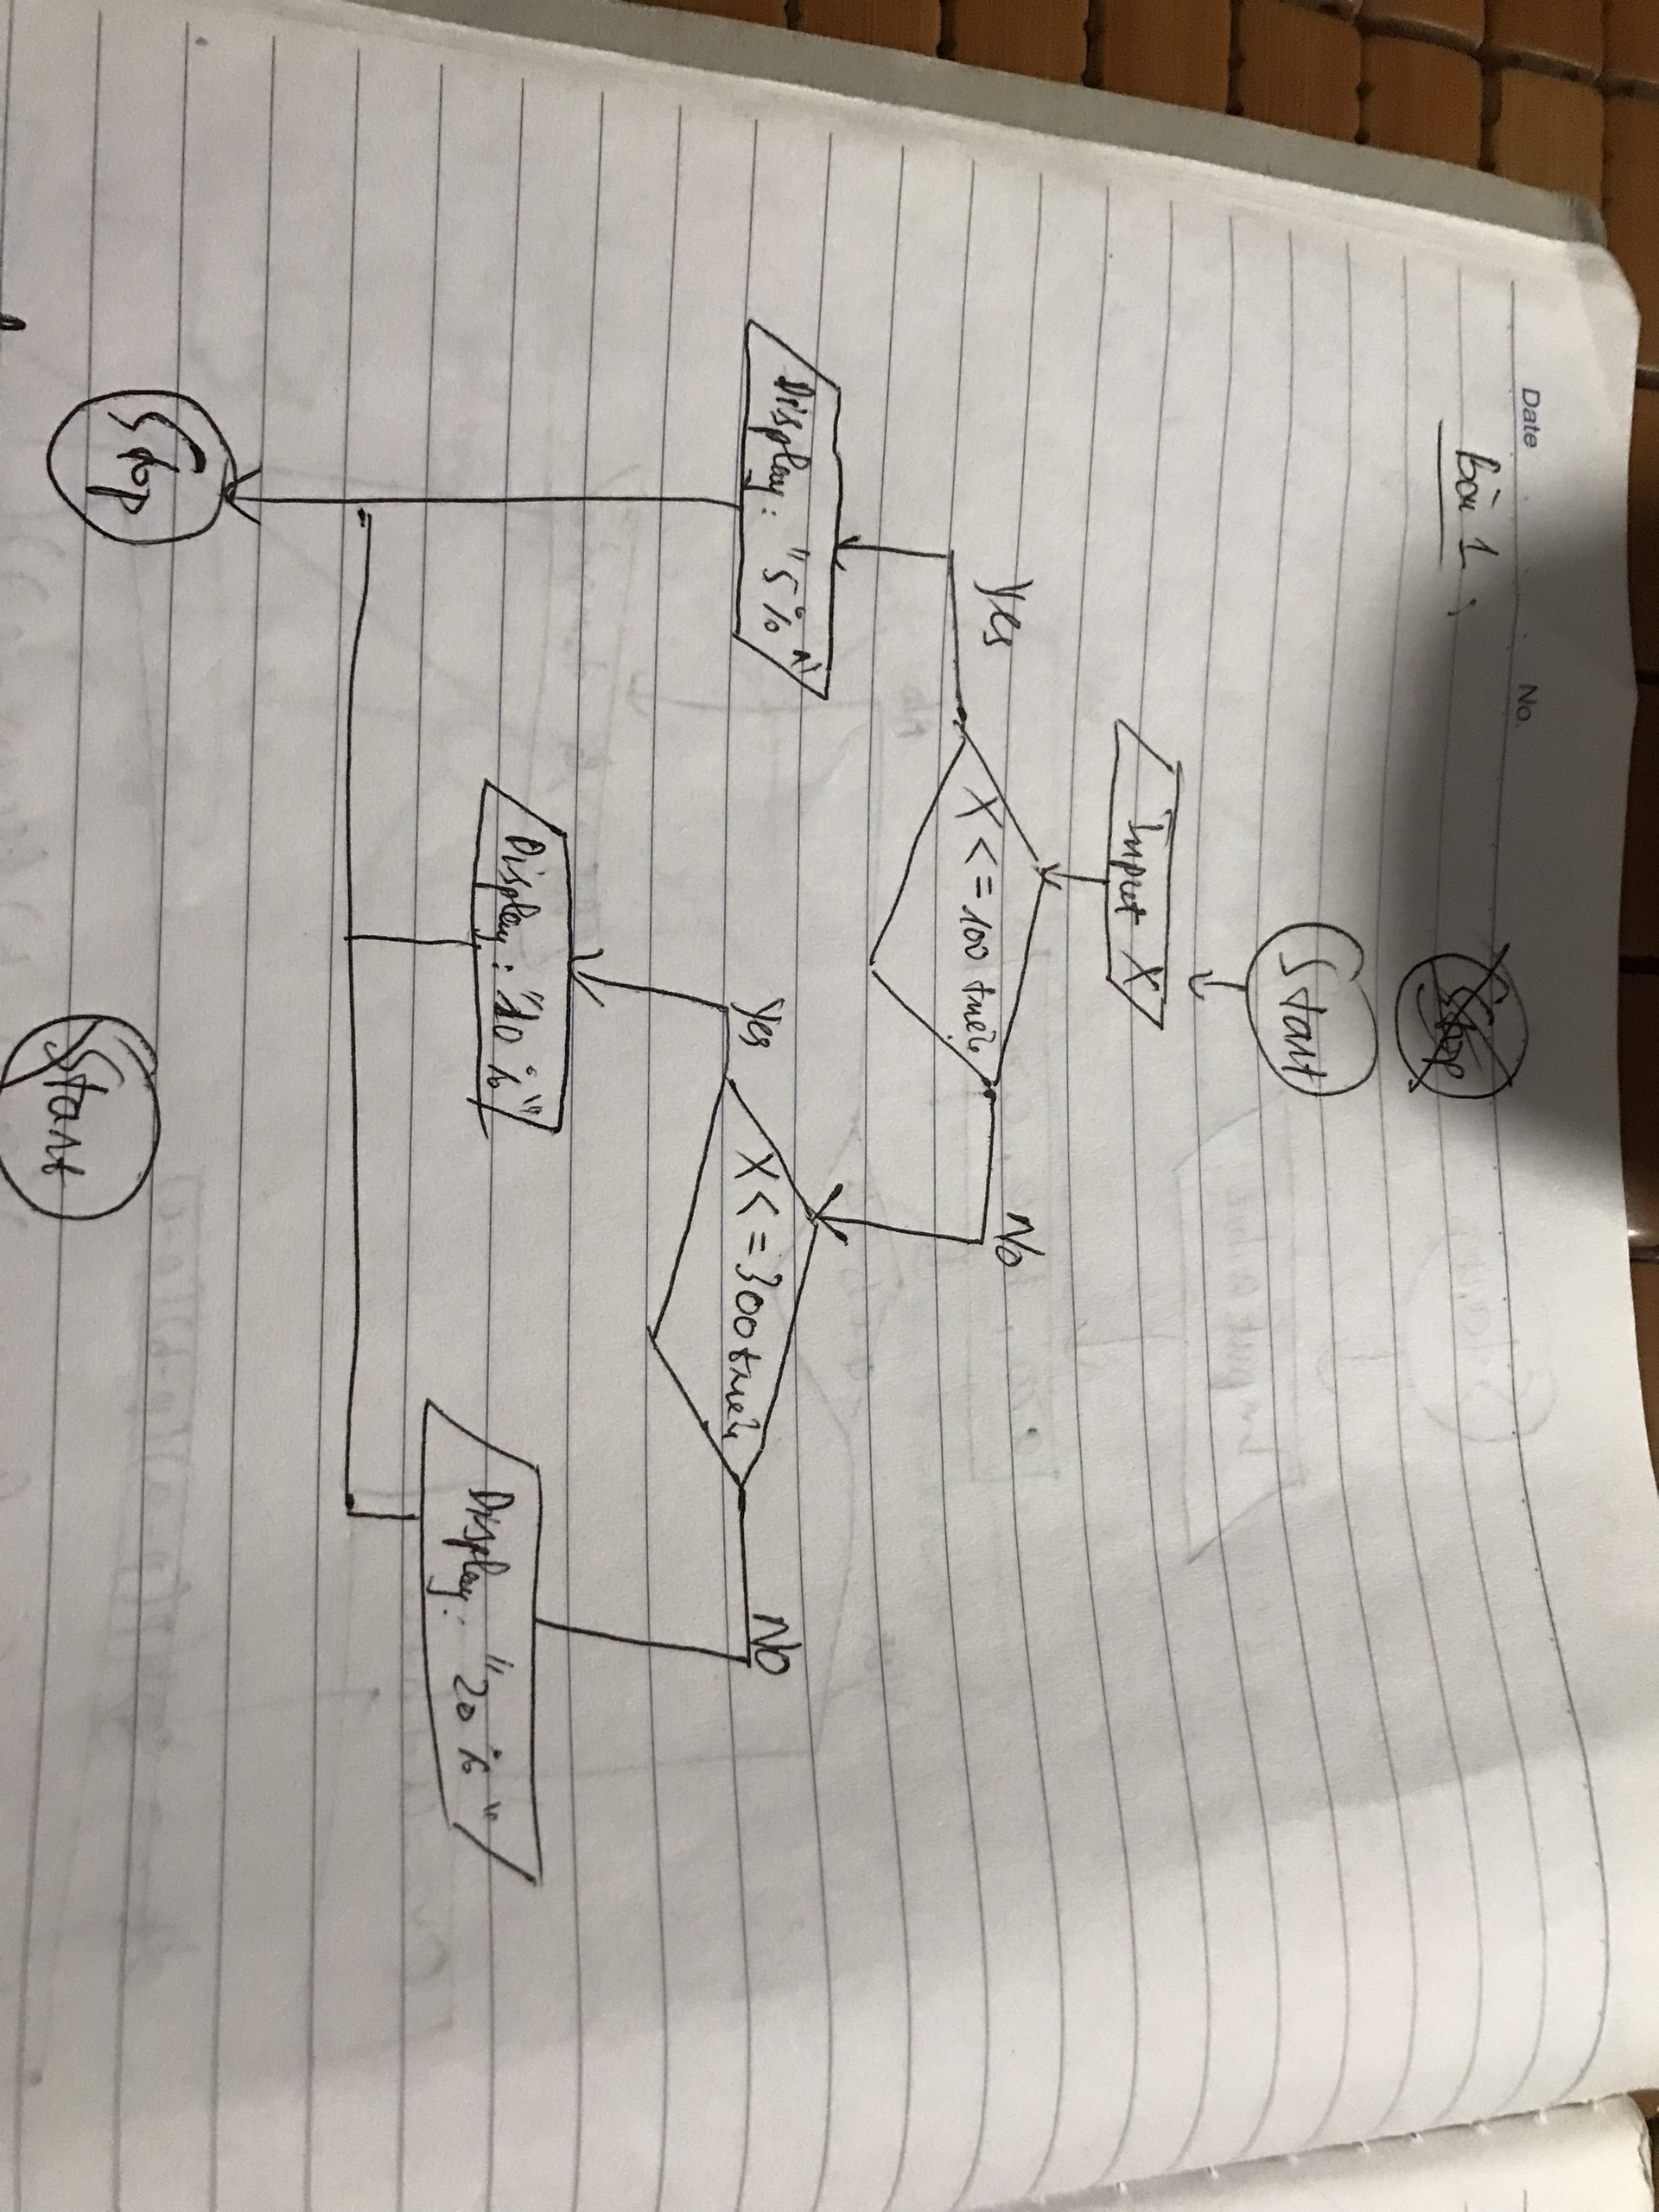 Date No.
Bài 1:
Stop
Start
Input X
X <= 100 triệu
Yes
No
Display: "5%"
X <= 300 triệu
Yes
No
Display: "10%"
Display: "20%"
Stop
Start